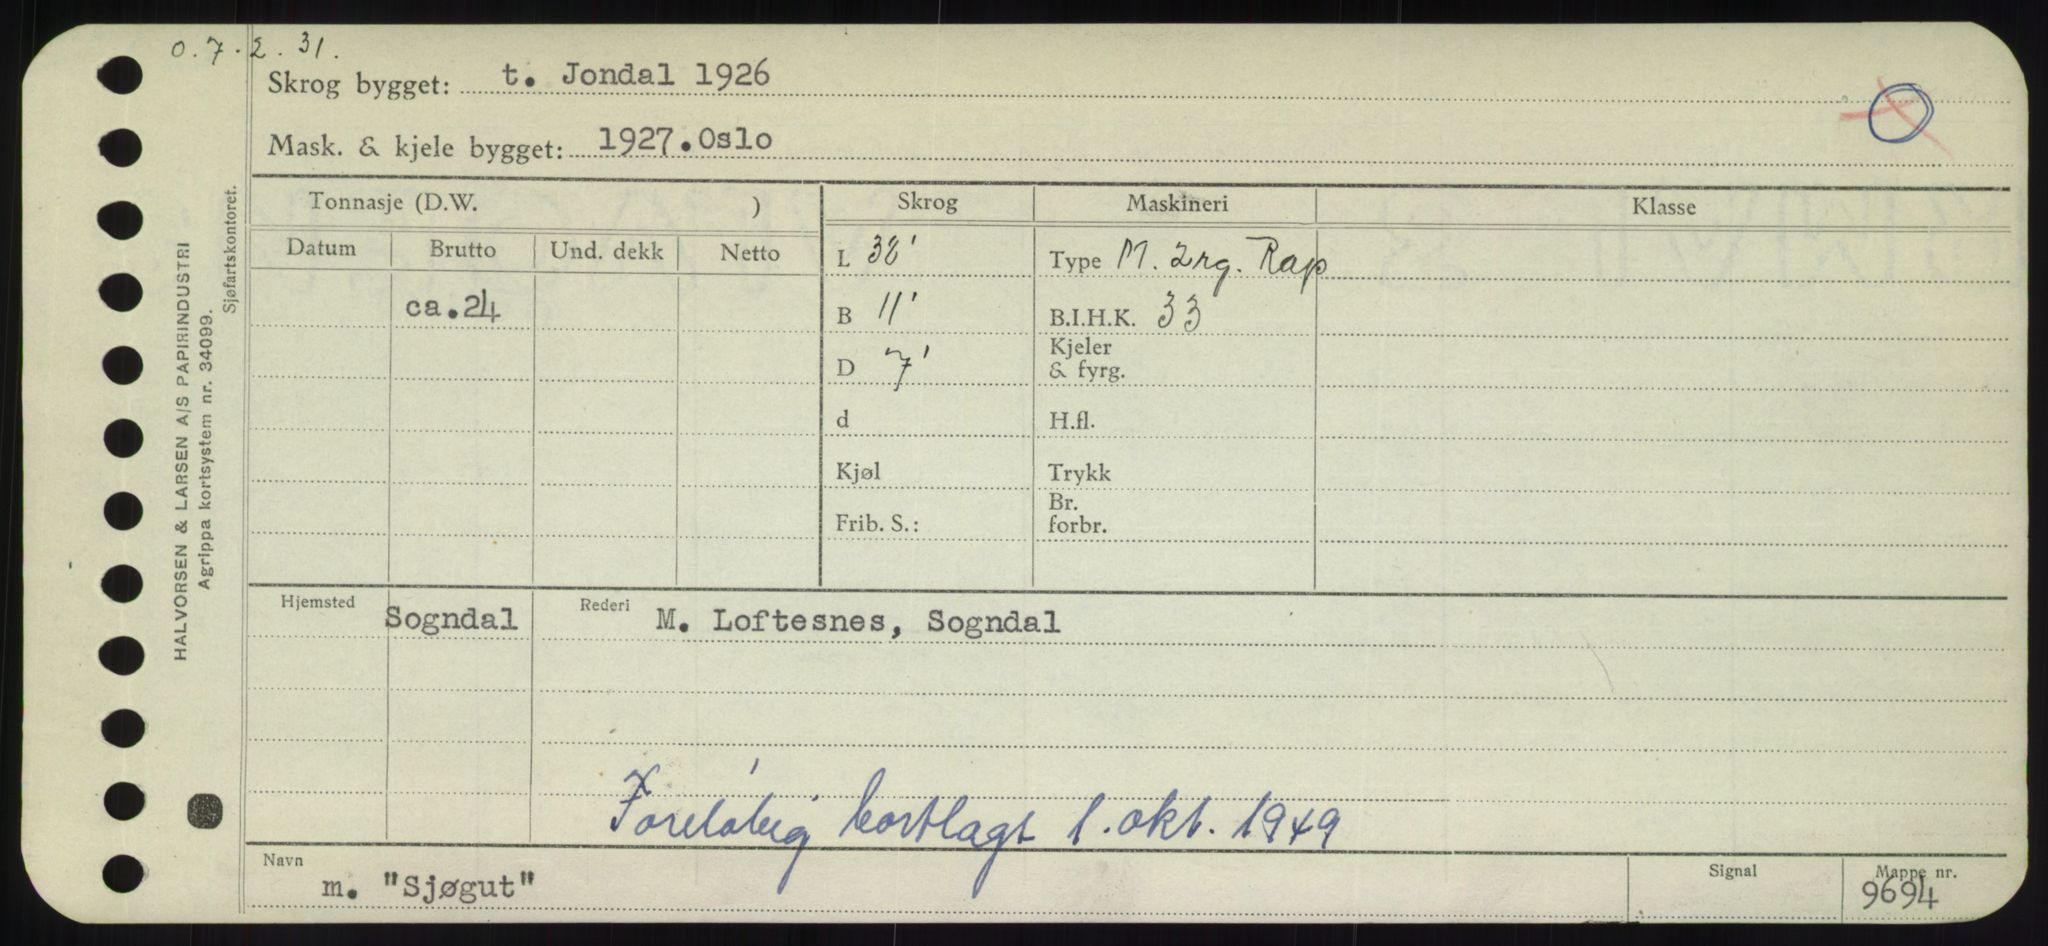 0.7.2.31.
Skrog bygget: t. Jondal 1926
Mask. & kjele bygget: 1927.Oslo
Tonnasje (D.W. )
Skrog
Maskineri
Klasse
Datum
Brutto
Und. dekk
Netto
ca.24
L 38'
B 11'
D 7'
d
Kjøl
Frib. S.:
Type M. 2rg. Rap
B.I.H.K. 33
Kjeler
& fyrg.
H.fl.
Trykk
Br.
forbr.
Hjemsted Sogndal
Rederi M. Loftesnes, Sogndal
Foreløbig bortlagt 1. okt. 1949
Navn
m. "Sjøgut"
Signal
Mappe nr.
9694
HALVORSEN & LARSEN A/S PAPIRINDUSTRI
Agrippa kortsystem nr. 34099.
Sjøfartskontoret.